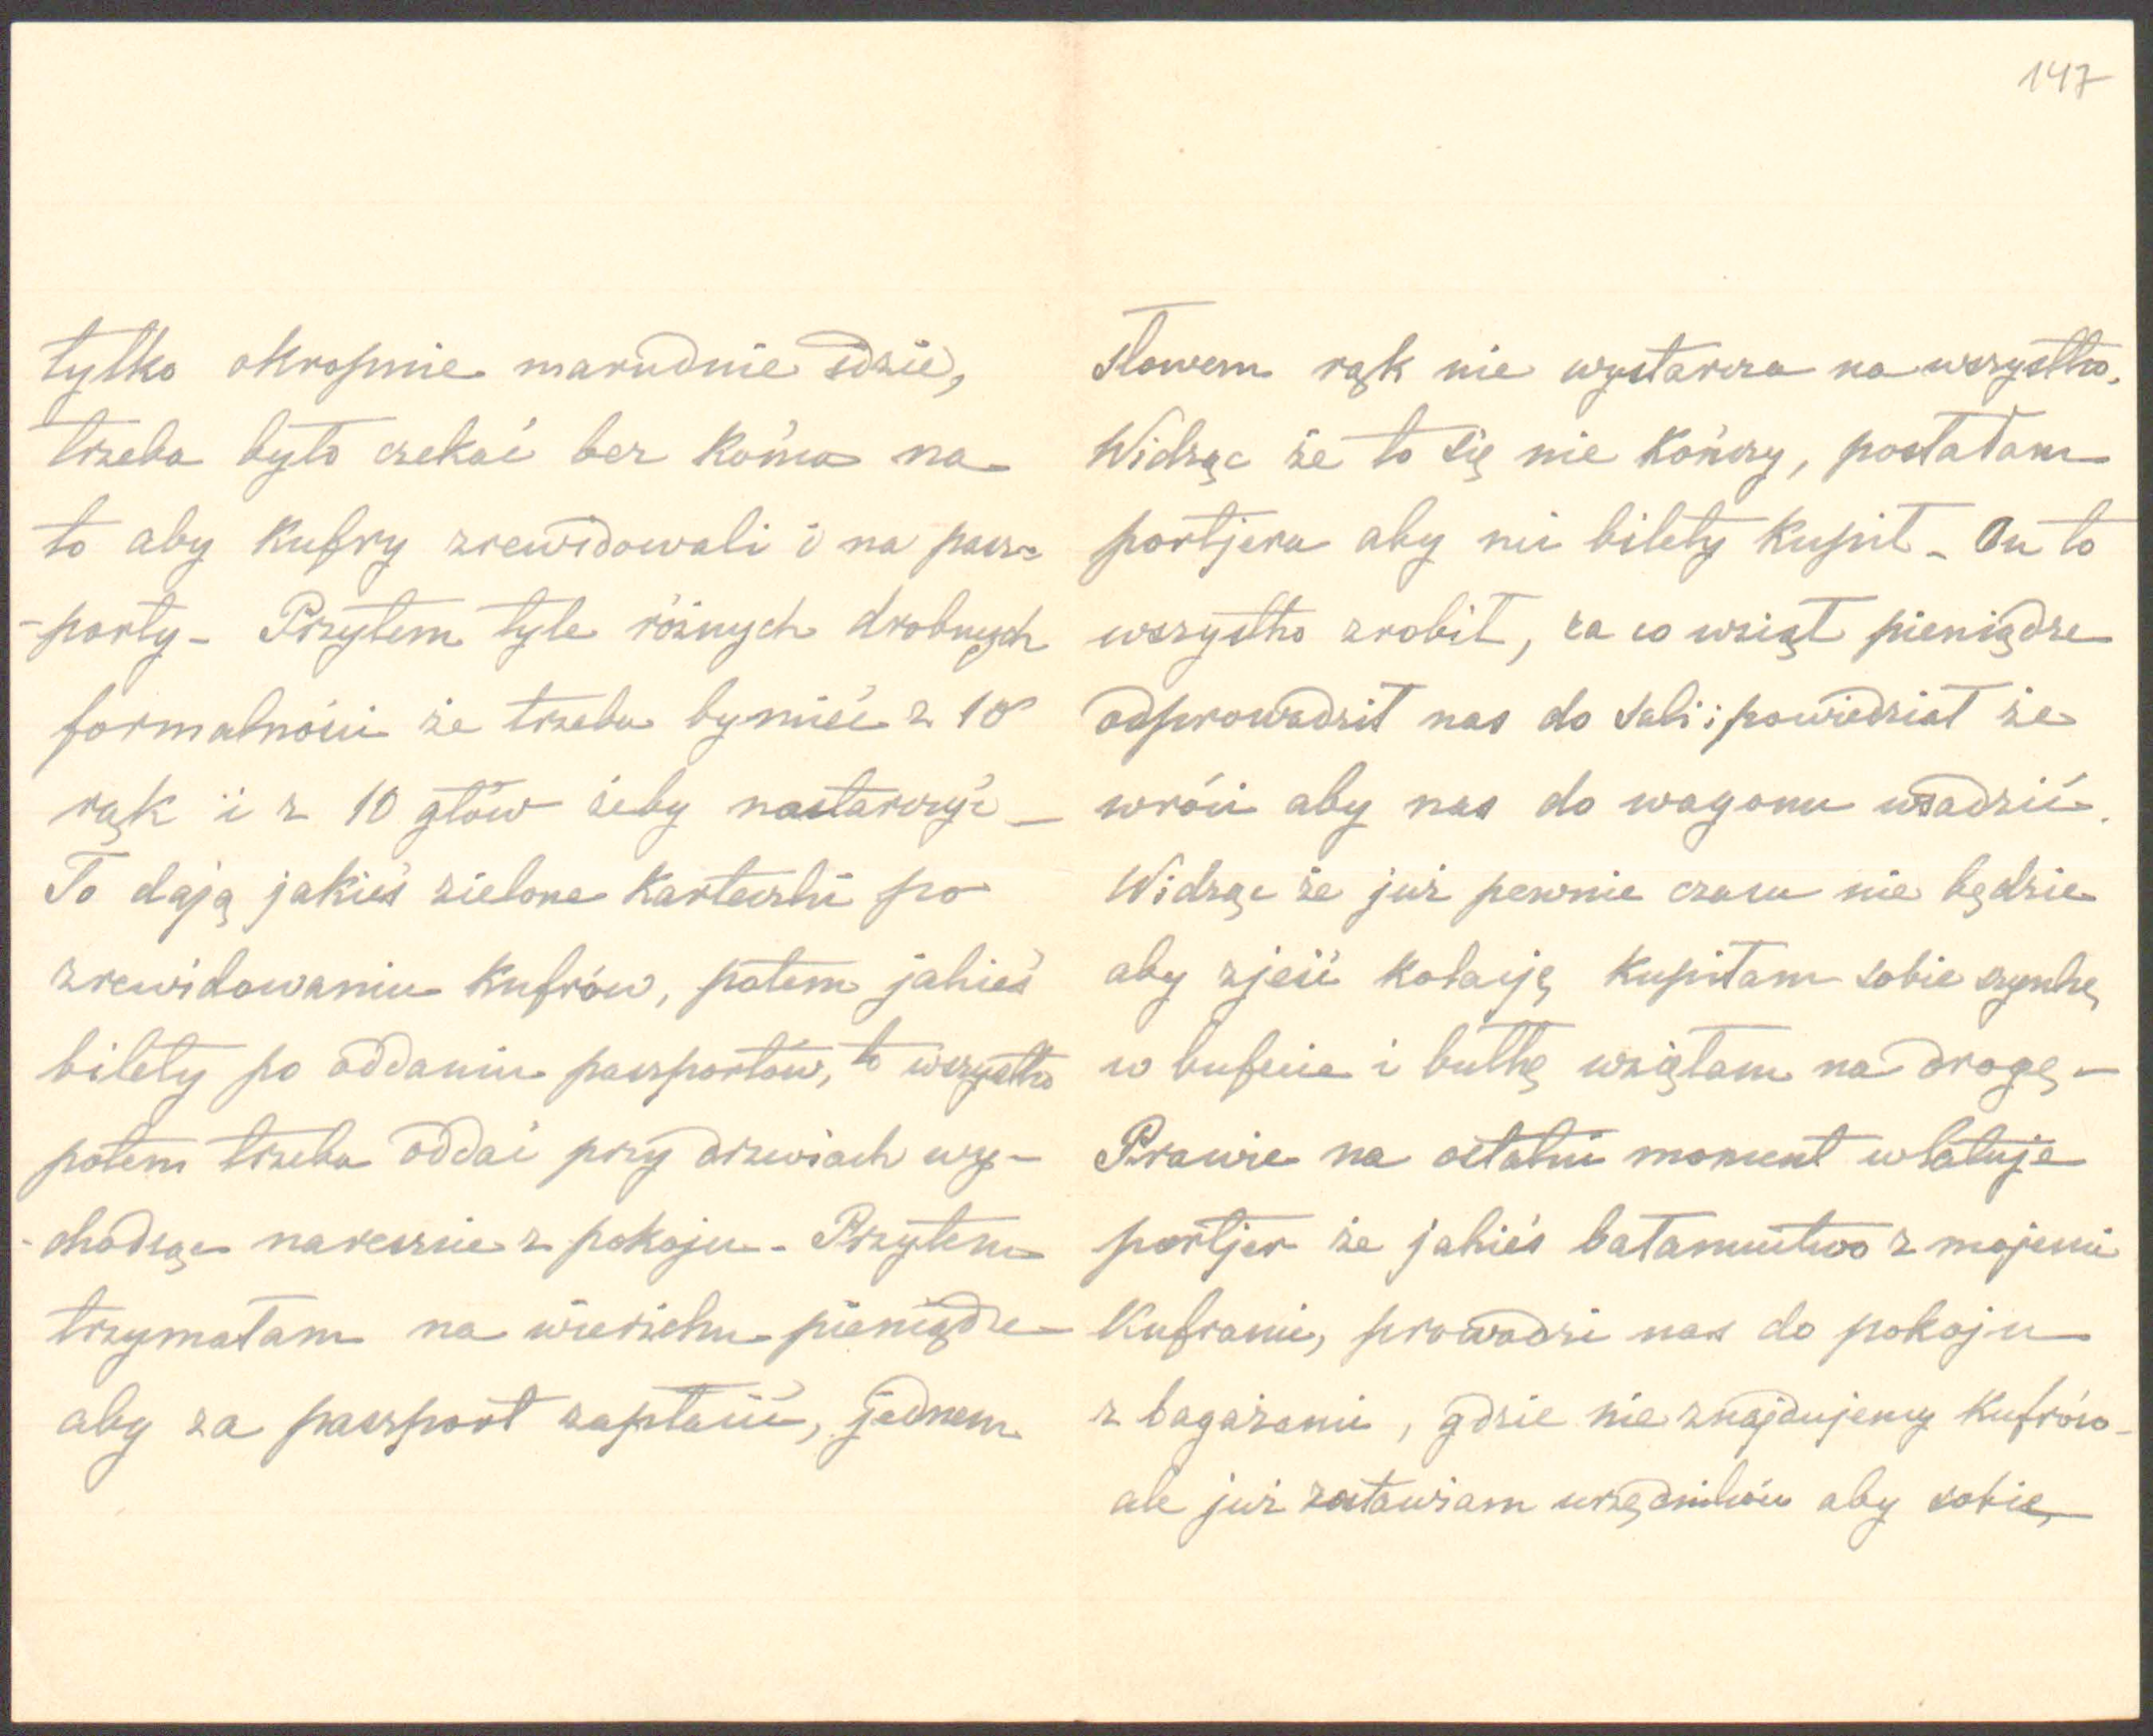 147
tylko okropnie marudnie idzie,
trzeba było czekać bez końca na
to aby kufry zrewidowali i na pasz-
-porty - Przytem tyle różnych drobnych
formalności że trzeba by mieć z 10
rąk i z 10 głów żeby nastarczyć -
To dają jakieś zielone karteczki po
zrewidowaniu kufrów, potem jakieś
bilety po oddaniu paszportów, to wszystko
potem trzeba oddać przy drzwiach wy-
-chodząc nareszcie z pokoju. Przytem
trzymałam na wierzchu pieniądze
aby za paszport zapłacić, jednem
słowem rąk nie wystarcza na wszystko.
Widząc że to się nie kończy, posłałam
portjera aby mi bilety kupił - On to
wszystko zrobił, za co wziął pieniądze
odprowadził nas do sali i powiedział że
wróci aby nas do wagonu wsadzić.
Widząc że już pewnie czasu nie będzie
aby zjeść kolację kupiłam sobie szynkę
w bufecie i bułkę wzięłam na drogę -
Prawie na ostatni moment wlatuje
portjer że jakieś bałamuctwo z mojemi
kuframi, prowadzi nas do pokoju
z bagażami, gdzie nie znajdujemy kufrów -
ale już zostawiam urzędników aby sobie